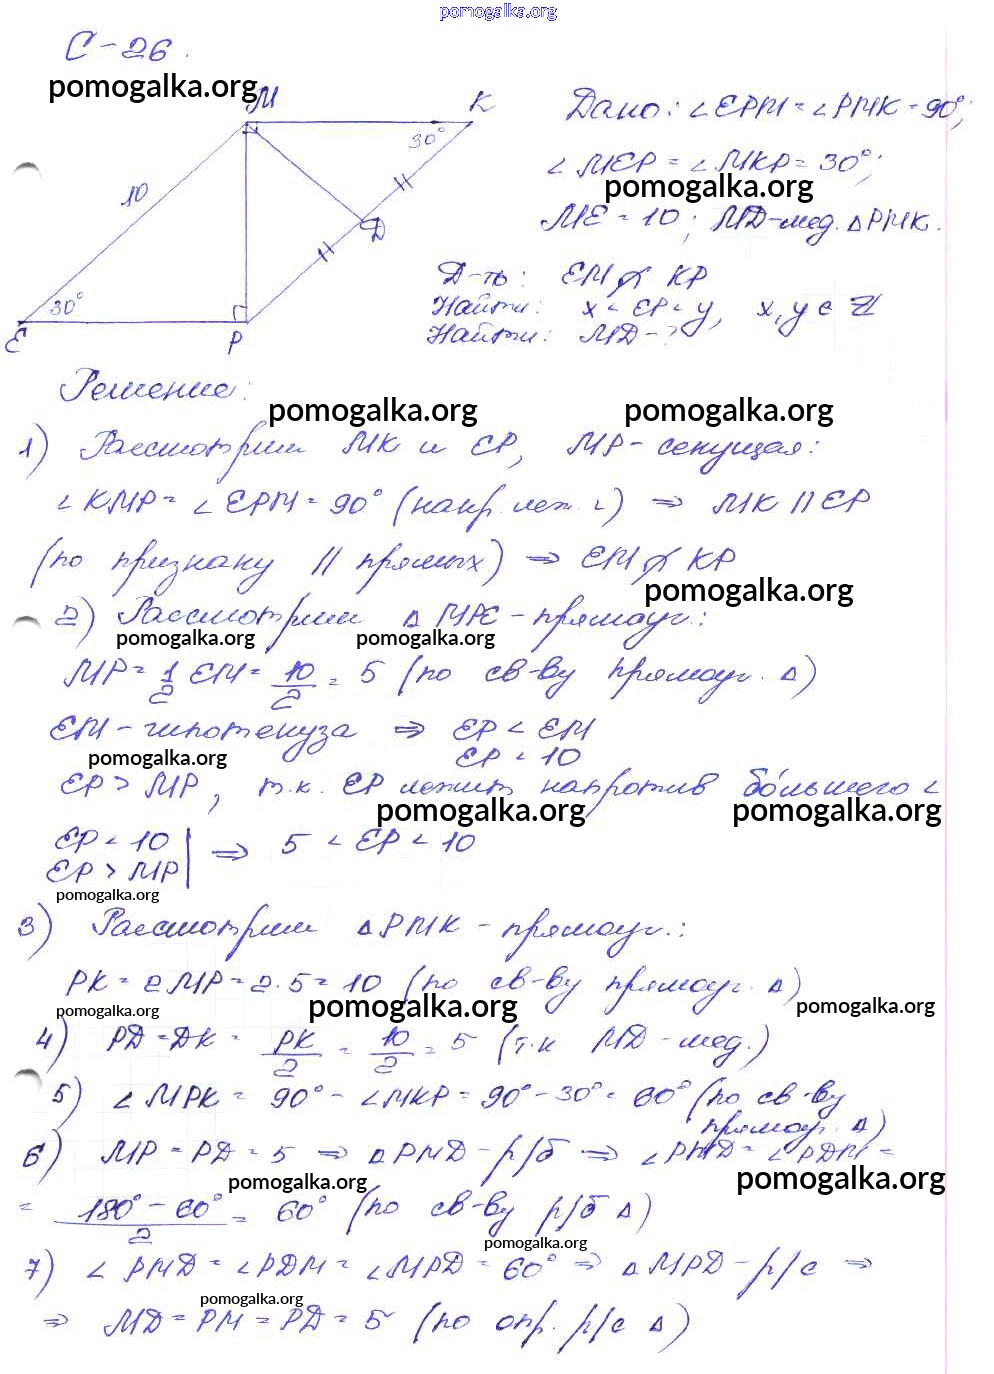 pomogalka.org
С-26.
pomogalka.org
М
К
30°
10
Д
30°
Е
Р
Дано: ∠EPM = ∠PMK = 90°;
∠MEP = ∠MKP = 30°;
pomogalka.org
ME = 10; MД-мед. △PMK.
Д-ть: EM ∦ KP
Найти: x < EP < y, x, y ∈ Z
Найти: MД - ?
Решение:
pomogalka.org pomogalka.org
1) Рассмотрим MK и EP, MP - секущая:
∠KMP = ∠EPM = 90° (накр. леж. ∠) ⇒ MK || EP
(по признаку || прямых) ⇒ EM ∦ KP
pomogalka.org
2) Рассмотрим △MPE - прямоуг.:
pomogalka.org pomogalka.org
MP = 1/2 EM = 10/2 = 5 (по св-ву прямоуг. △)
EM - гипотенуза ⇒ EP < EM
EP < 10
pomogalka.org
EP > MP, т.к. EP лежит напротив бо́льшего ∠
pomogalka.org pomogalka.org
EP < 10
EP > MP | ⇒ 5 < EP < 10
pomogalka.org
3) Рассмотрим △PMK - прямоуг.:
PK = 2MP = 2·5 = 10 (по св-ву прямоуг. △)
pomogalka.org pomogalka.org pomogalka.org
4) PД = ДK = PK/2 = 10/2 = 5 (т.к MД - мед.)
5) ∠MPK = 90° - ∠MKP = 90° - 30° = 60° (по св-ву
прямоуг. △)
6) MP = PД = 5 ⇒ △PMД - р/б ⇒ ∠PMД = ∠PДM =
pomogalka.org pomogalka.org
= 180° - 60°/2 = 60° (по св-ву р/б △)
pomogalka.org
7) ∠PMД = ∠PДM = ∠MPД = 60° ⇒ △MPД - р/с ⇒
pomogalka.org
⇒ MД = PM = PД = 5 (по опр. р/с △)